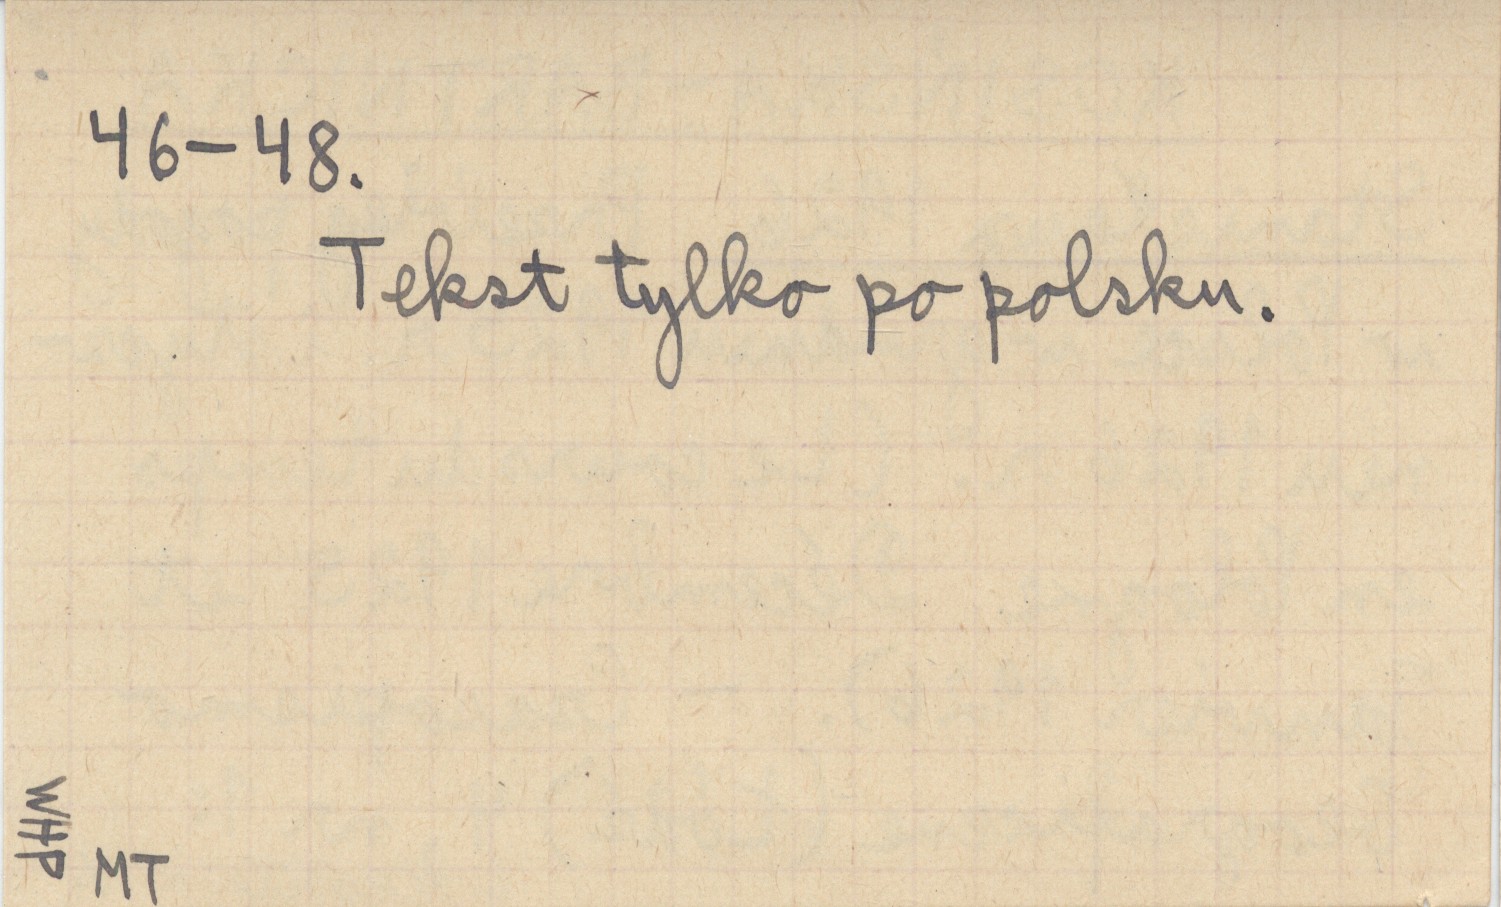 46-48.
Tekst tylko po polsku.
WHP
MT